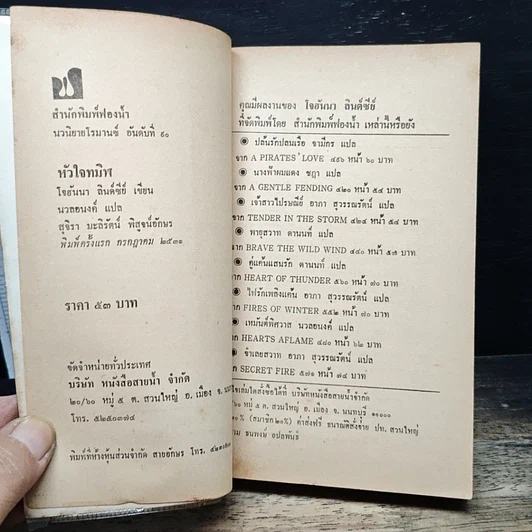 สำนักพิมพ์ฟองน้ำ
นวนิยายโรมานซ์ อันดับที่ ๙๐
หัวใจทมิฬ
โจฮันนา ลินด์ซีย์ เขียน
นวลอนงค์ แปล
สุจิรา มะลิรัตน์ พิสูจน์อักษร
พิมพ์ครั้งแรก กรกฎาคม ๒๕๓๑
ราคา ๕๓ บาท
จัดจำหน่ายทั่วประเทศ
บริษัท หนังสือสายน้ำ จำกัด
๒๐/๖๐ หมู่ ๕ ต. สวนใหญ่ อ. เมือง จ.
โทร. ๕๒๕๐๓๗๔
พิมพ์ที่ห้างหุ้นส่วนจำกัด สายอักษร โทร.
คุณมีผลงานของ โจฮันนา ลินด์ซีย์
ที่จัดพิมพ์โดย สำนักพิมพ์ฟองน้ำ เหล่านี้หรือยัง
ปล้นรักปล้นเรือ ขามีกร แปล
จาก A PIRATES' LOVE ๔๕๖ หน้า ๖๐ บาท
นางฟ้าผมแดง ชฎา แปล
จาก A GENTLE FENDING ๔๒๐ หน้า ๕๔ บาท
เจ้าสาวไปรษณีย์ อาภา สุวรรณรัตน์ แปล
จาก TENDER IN THE STORM ๔๒๔ หน้า ๕๔ บาท
พายุสวาท ดานนท์ แปล
จาก BRAVE THE WILD WIND ๔๔๐ หน้า ๕๗ บาท
คู่แค้นแสนรัก ดานนท์ แปล
จาก HEART OF THUNDER ๕๖๐ หน้า ๗๐ บาท
ไฟรักเพลิงแค้น อาภา สุวรรณรัตน์ แปล
จาก FIRES OF WINTER ๕๕๒ หน้า ๗๐ บาท
เหมันต์พิศวาส นวลอนงค์ แปล
HEARTS AFLAME ๔๘๐ หน้า ๖๒ บาท
จำเลยสวาท อาภา สุวรรณรัตน์ แปล
SECRET FIRE ๕๗๖ หน้า ๗๔ บาท
สั่งซื้อได้ที่ บริษัทหนังสือสายน้ำจำกัด
๖๐ หมู่ ๕ ต. สวนใหญ่ อ. เมือง จ. นนทบุรี ๑๑๐๐๐
(สมาชิก ๒๐%) ค่าส่งฟรี ธนาณัติสั่งจ่าย ปท. สวนใหญ่